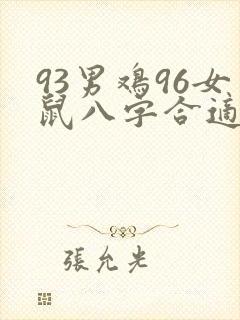 93男鸡96女
鼠八字合適
張允光